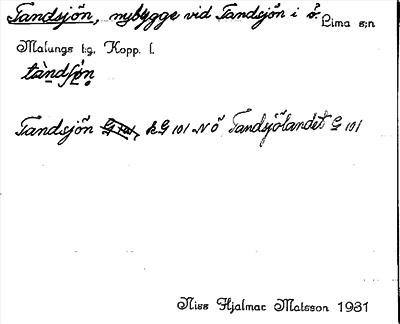 Tandsjön, nybygge vid Tandsjön i ö. Lima s:n
Malungs t:g, Kopp. l.
tàndʃø̀n
Tandsjön G 101, k G 101 N Ö Tandsjölandet G 101
Niss Hjalmar Matsson 1931